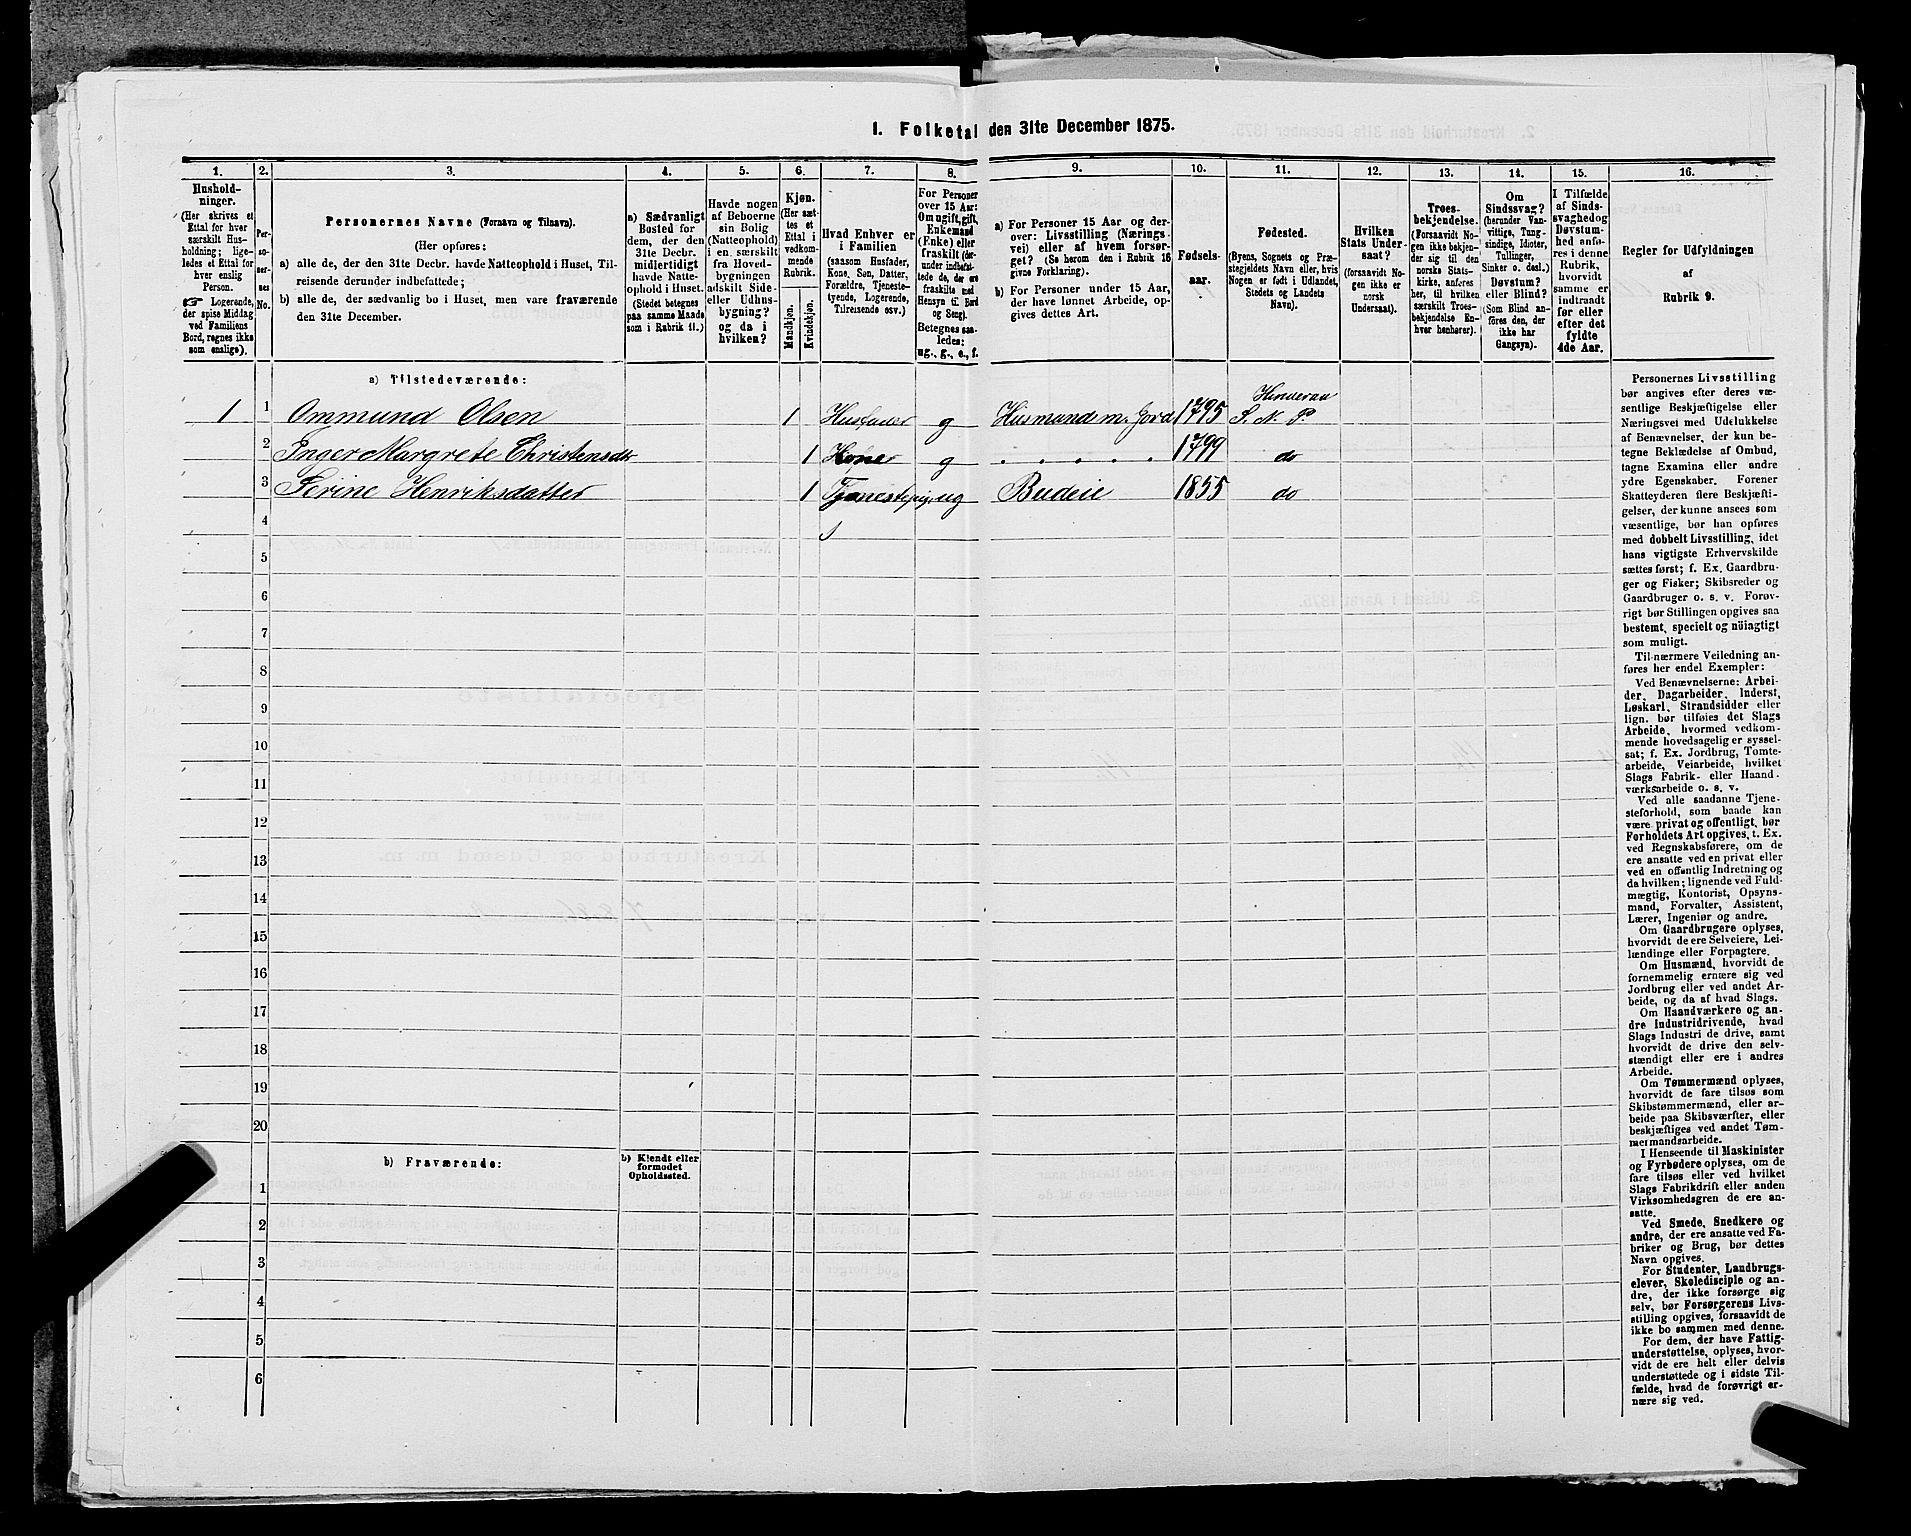 1. Folketal den 31te December 1875.
1.
Hushold-
ninger.
(Her skrives et
Ettal for hver
særskilt Hus-
holdning; lige-
ledes et Ettal for
hver enslig
Person.
☞ Logerende,
der spise Middag
ved Familiens
Bord, regnes ikke
som enslige).
2.
Per-
so-
ner-
nes
No.
3.
Personernes Navne (Fornavn og Tilnavn).
(Her opføres:
a) alle de, der den 31te Decbr. havde Natteophold i Huset, Til-
reisende derunder indbefattede;
b) alle de, der sædvanlig bo i Huset, men vare fraværende
den 31te December.
4.
a) Sædvanligt
Bosted for
dem, der den
31te Decbr.
midlertidigt
havde Natte-
ophold i Huset.
(Stedet betegnes
paa samme Maade
som i Rubrik 11.)
5.
Havde nogen
af Beboerne
sin Bolig
(Natteophold)
i en særskilt
fra Hoved-
bygningen
adskilt Side-
eller Udhus-
bygning?
og da i
hvilken?
6.
Kjøn.
(Her sæt-
tes et
Ettal i
vedkom-
mende
Rubrik.
Mandkjøn.
Kvindekjøn.
7.
Hvad Enhver er
i Familien
(saasom Husfader,
Kone, Søn, Datter,
Forældre, Tjeneste-
tyende, Logerende,
Tilreisende osv.)
8.
For Personer
over 15 Aar:
Om ugift, gift,
Enkemand
(Enke) eller
fraskilt (der-
under indbefat-
tede de, der ere
fraskilte med
Hensyn til Bord
og Seng).
Betegnes saa-
ledes:
ug., g., e., f.
9.
a) For Personer 15 Aar og der-
over: Livsstilling (Nærings-
vei) eller af hvem forsør-
get? (Se herom den i Rubrik 16
givne Forklaring).
b) For Personer under 15 Aar,
der have lønnet Arbeide, op-
gives dettes Art.
10.
Fødsels-
aar.
11.
Fødested.
(Byens, Sognets og Præ-
stegjeldets Navn eller, hvis
Nogen er født i Udlandet,
Stedets og Landets
Navn).
12.
Hvilken
Stats Under-
saat?
(forsaavidt No-
gen ikke er
norsk
Undersaat).
13.
Troes-
bekjendelse.
(Forsaavidt No-
gen ikke bekjen-
der sig til den
norske Stats-
kirke, anføres
her, til hvilken
særskilt Troes-
bekjendelse En-
hver henhører).
14.
Om
Sindssvag?
(herunder Van-
vittige, Tung-
sindige, Idioter,
Tullinger,
Sinker o. desl.)
Døvstum?
eller Blind?
(Som Blind an-
føres den, der
ikke har
Gangsyn).
15.
I Tilfælde
af Sinds-
svaghed og
Døvstum-
hed anfø-
res i denne
Rubrik,
hvorvidt
samme er
indtraadt
før eller
efter det
fyldte
4de Aar.
16.
Regler for Udfyldningen
af
Rubrik 9.
a) Tilstedeværende:
1 1 Ommund Olsen 1 Husfader g Husmand m. Jord 1795 Hinderaa S. N. P.
2 Inger Margrete Christensdtr 1 Kone g . . . . . 1799 do
3 Serine Henriksdatter 1 Tjenestepige ug Budeie 1855 do
4
5
6
7
8
9
10
11
12
13
14
15
16
17
18
19
20
b) Fraværende:
b) Kjendt eller
formodet
Opholdssted.
1
2
3
4
5
6
Personernes Livsstilling
bør angives efter deres væ-
sentlige Beskjæftigelse eller
Næringsvei med Udelukkelse
af Benævnelser, der kun be-
tegne Beklædelse af Ombud,
tagne Examina eller andre
ydre Egenskaber. Forener
Skatteyderen flere Beskjæfti-
gelser, der kunne ansees som
væsentlige, bør han opføres
med dobbelt Livsstilling, idet
hans vigtigste Erhvervskilde
sættes først; f. Ex. Gaardbru-
ger og Fisker; Skibsreder og
Gaardbruger o. s. v. Forøv-
rigt bør Stillingen opgives saa
bestemt, specielt og nøiagtigt
som muligt.
Til nærmere Veiledning an-
føres her endel Exempler:
Ved Benævnelserne: Arbei-
der, Dagarbeider, Inderst,
Løskarl, Strandsidder eller
lign. bør tilføies det Slags
Arbeide, hvormed vedkom-
mende hovedsagelig er syssel-
sat; f. Ex. Jordbrug, Tomte-
arbeide, Veiarbeide, hvilket
Slags Fabrik- eller Haand-
værksarbeide o. s. v.
Ved alle saadanne Tjene-
steforhold, som baade kan
være privat og offentligt, bør
Forholdets Art opgives, t. Ex.
ved Regnskabsførere, om de
ere ansatte ved en privat eller
ved en offentlig Indretning og
da hvilken; lignende ved Fuld-
mægtig, Kontorist, Opsyns-
mand, Forvalter, Assistent,
Lærer, Ingeniør og andre.
Om Gaardbrugere oplyses,
hvorvidt de ere Selveiere, Lei-
lændinge eller Forpagtere.
Om Husmænd, hvorvidt de
fornemmelig ernære sig ved
Jordbrug eller ved andet Ar-
beide, og da af hvad Slags.
Om Haandværkere og an-
dre Industridrivende, hvad
Slags Industri de drive, samt
hvorvidt de drive den selv-
stændigt eller ere i andres
Arbeide.
Om Tømmermænd oplyses,
hvorvidt de fare tilsøs som
Skibstømmermænd, eller ar-
beide paa Skibsværfter, eller
beskjæftiges ved andet Tøm-
mermandsarbeide.
I Henseende til Maskinister
og Fyrbødere oplyses, om de
fare tilsøs eller ved hvilket
Slags Fabrikdrift eller anden
Virksomhedsgren de ere an-
satte.
Ved Smede, Snedkere og
andre, der ere ansatte ved Fa-
briker og Brug, bør dettes
Navn opgives.
For Studenter, Landbrugs-
elever, Skoledisciple og an-
dre, der ikke forsørge sig
selv, bør Forsørgerens Livs-
stilling opgives, forsaavidt de
ikke bo sammen med denne.
For dem, der have Fattig-
understøttelse, oplyses, hvor-
vidt de ere helt eller delvis
understøttede og i sidste Til-
fælde, hvad de forøvrigt er-
nære sig ved.